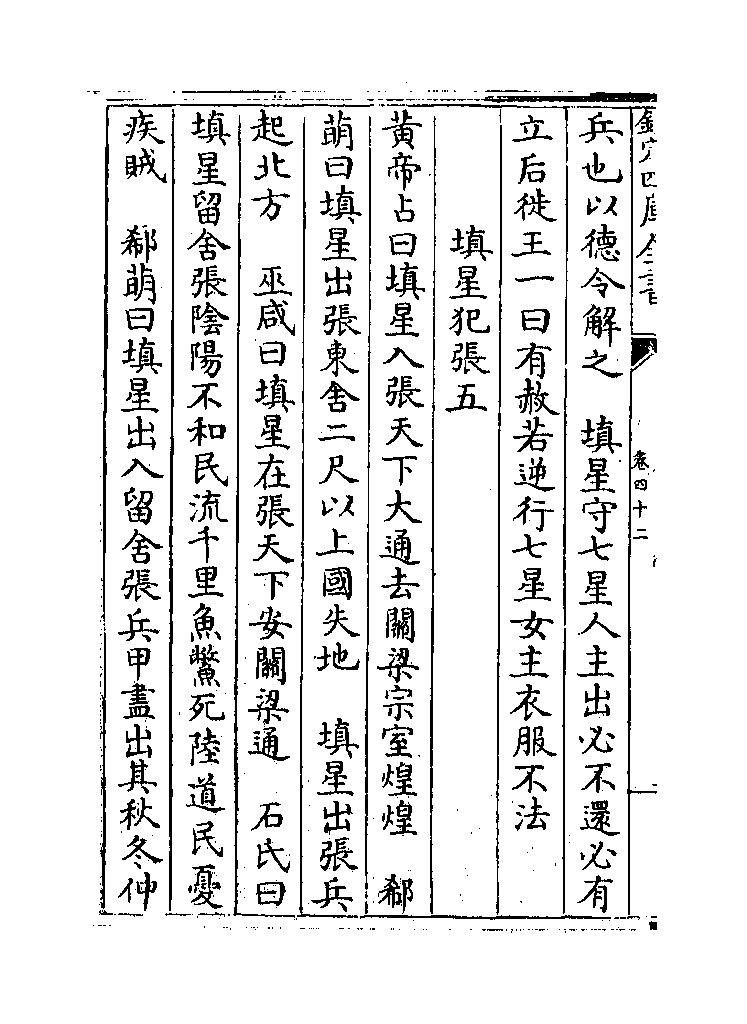 欽定四庫全書
卷四十二
兵也以德令解之　填星守七星人主出必不還必有
立后徙王一曰有赦若逆行七星女主衣服不法
填星犯張五
黃帝占曰填星入張天下大通去關梁宗室煌煌　郗
萌曰填星出張東舍二尺以上國失地　填星出張兵
起北方　巫咸曰填星在張天下安關梁通　石氏曰
填星留舍張陰陽不和民流千里魚鱉死陸道民憂
疾賊　郗萌曰填星出入留舍張兵甲盡出其秋冬仲